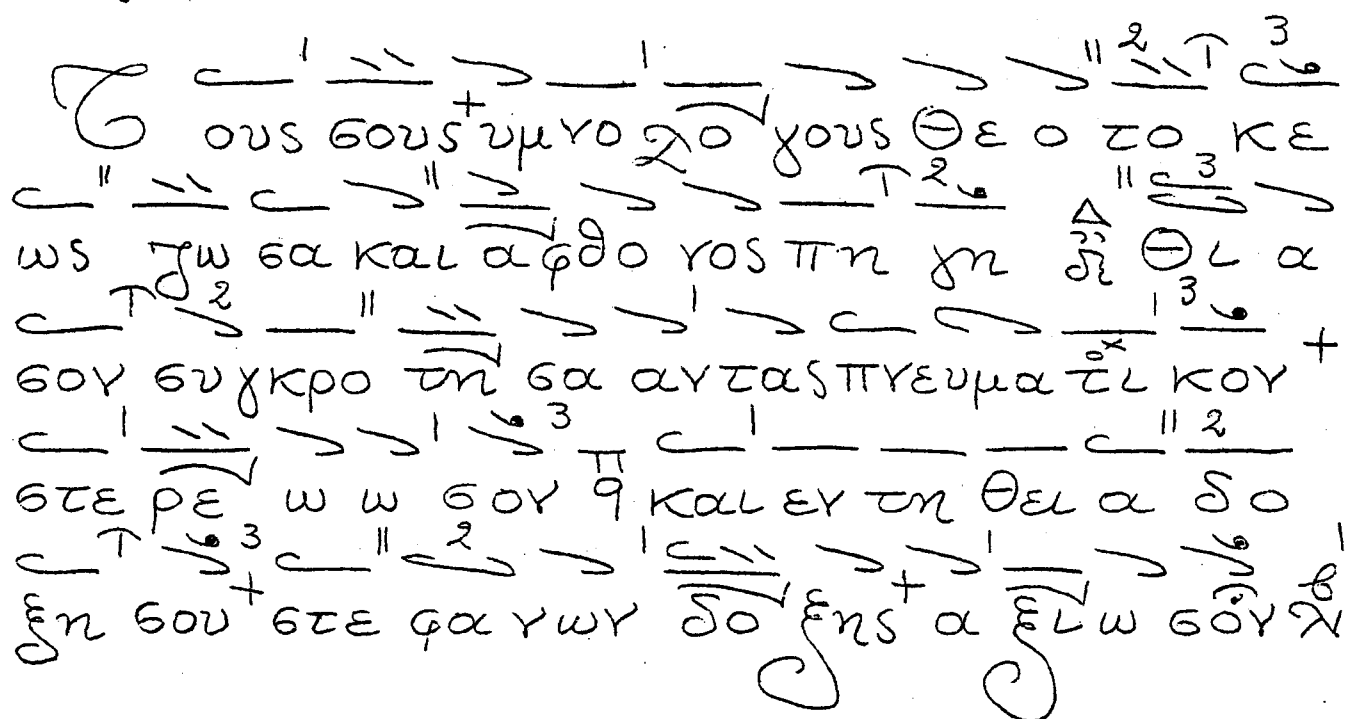 Τους σους υμνολόγους Θεοτοκε
ως ζωσα και αφθονος πηγη θια
σον συγκροτησα αντας πνευματικον
στερεωωσον και εν τη θεια δο
ξη σου στεφανων δοξης αξιωσον